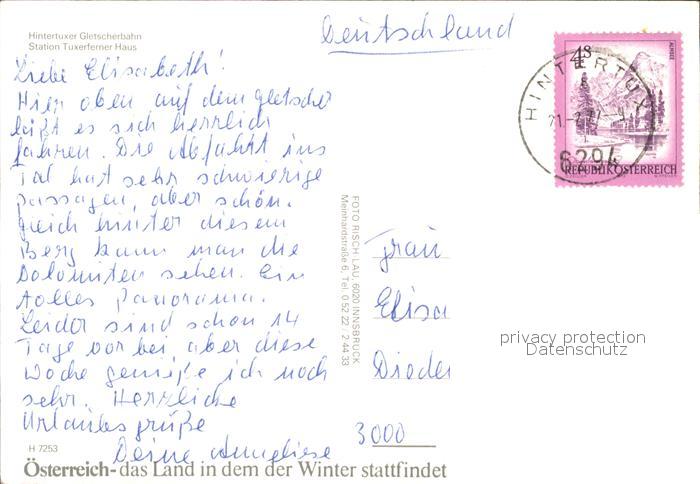 Hintertuxer Gletscherbahn
Station Tuxerferner Haus
Deutschland
Liebe Elisabeth!
Hier oben auf dem gletscher
läßt es sich herrlich
fahren. Die Abfahrt ins
Tal hat sehr schwierige
passagen, aber schön.
gleich hinter diesem
Berg kann man die
Dolomiten sehen. Ein
tolles Panorama.
Leider sind schon 14
Tage vorbei, aber diese
Woche genieße ich noch
sehr. Herrliche
Urlaubsgrüße
Deine Annegliese
H 7253
Österreich - das Land in dem der Winter stattfindet
FOTO RISCH-LAU, 6020 INNSBRUCK
Meinhardstraße 6, Tel. 0 52 22 / 2 44 33
4S
ALMSEE
REPUBLIK ÖSTERREICH
HINTERTUX
6294
Frau
Elisa
Dieder
3000
privacy protection
Datenschutz